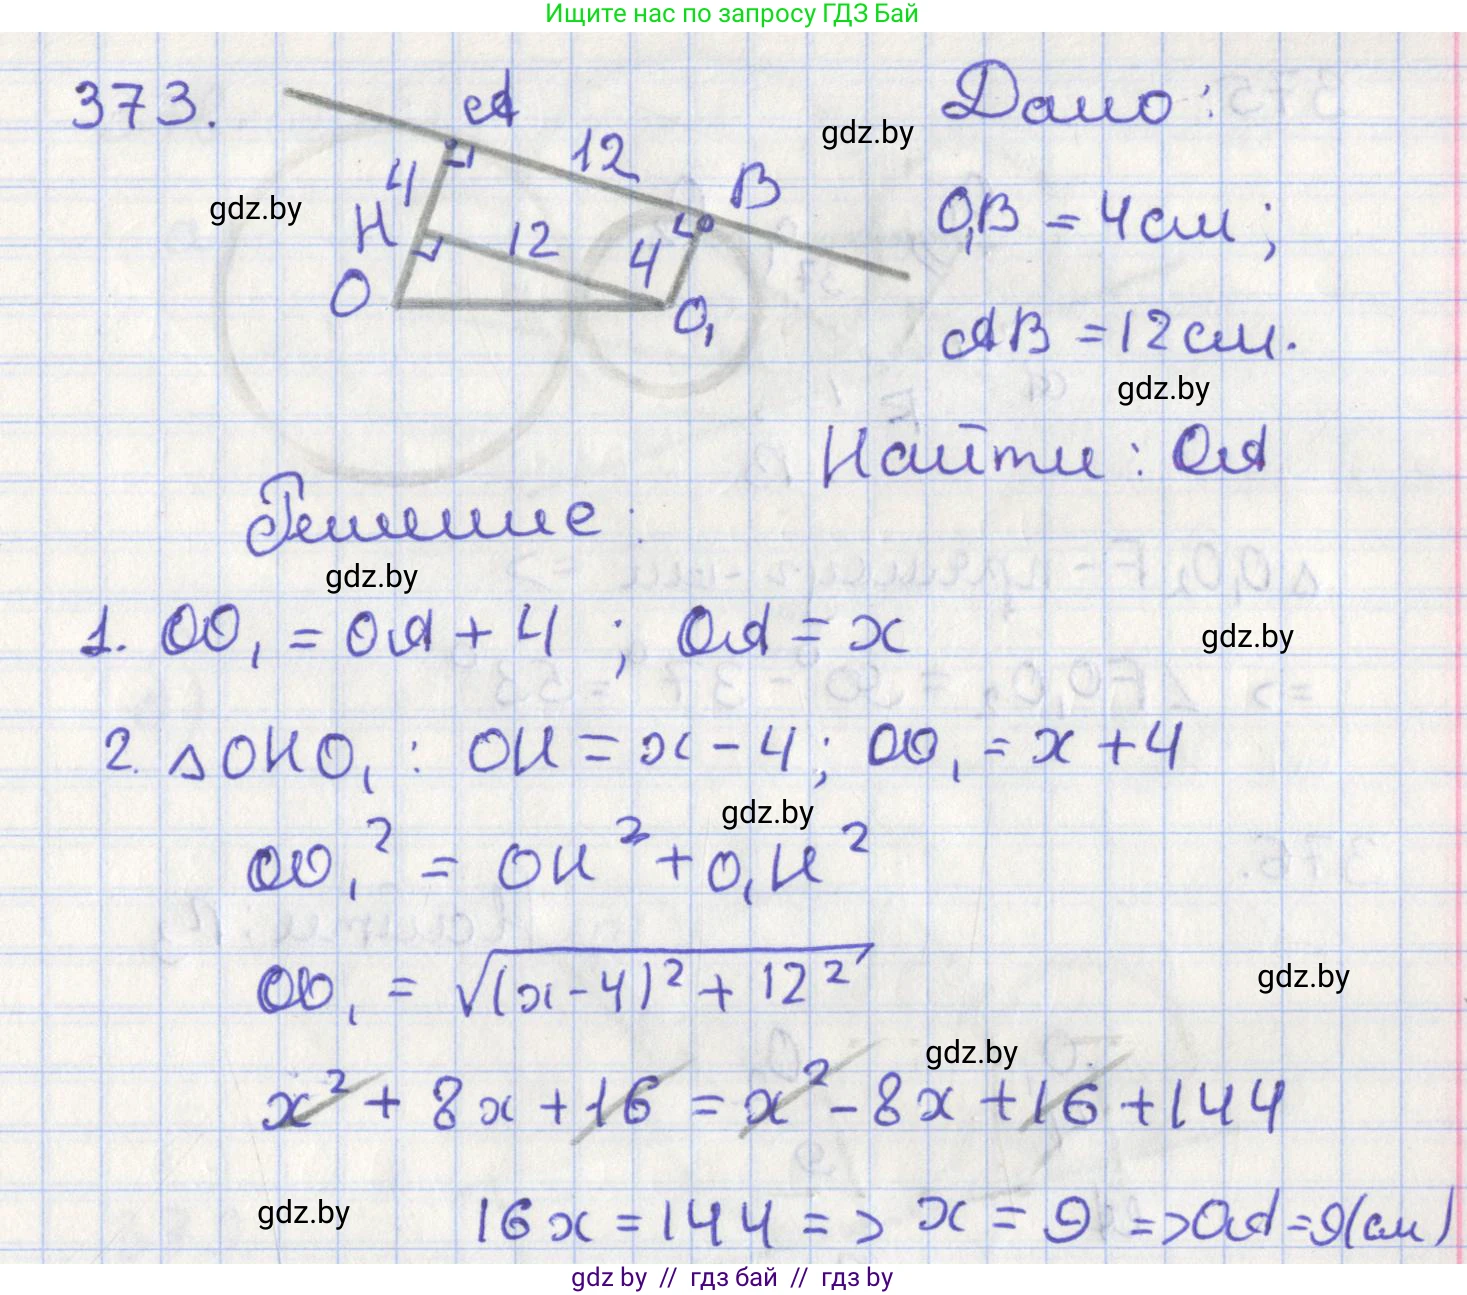 Ищите нас по запросу ГДЗ Бай
373.
A
12
B
4
H
12
4
O
O₁
gdz.by
gdz.by
Дано:
O₁B = 4см;
AB = 12см.
gdz.by
Найти: OA
Решение:
gdz.by
1. OO₁ = OA + 4 ; OA = x
gdz.by
2. △OHO₁ : OH = x - 4; OO₁ = x + 4
gdz.by
OO₁² = OH² + O₁H²
OO₁ = √(x-4)² + 12²
gdz.by
gdz.by
x² + 8x + 16 = x² - 8x + 16 + 144
gdz.by
16x = 144 => x = 9 => OA = 9(см)
gdz by // гдз бай // gdz by